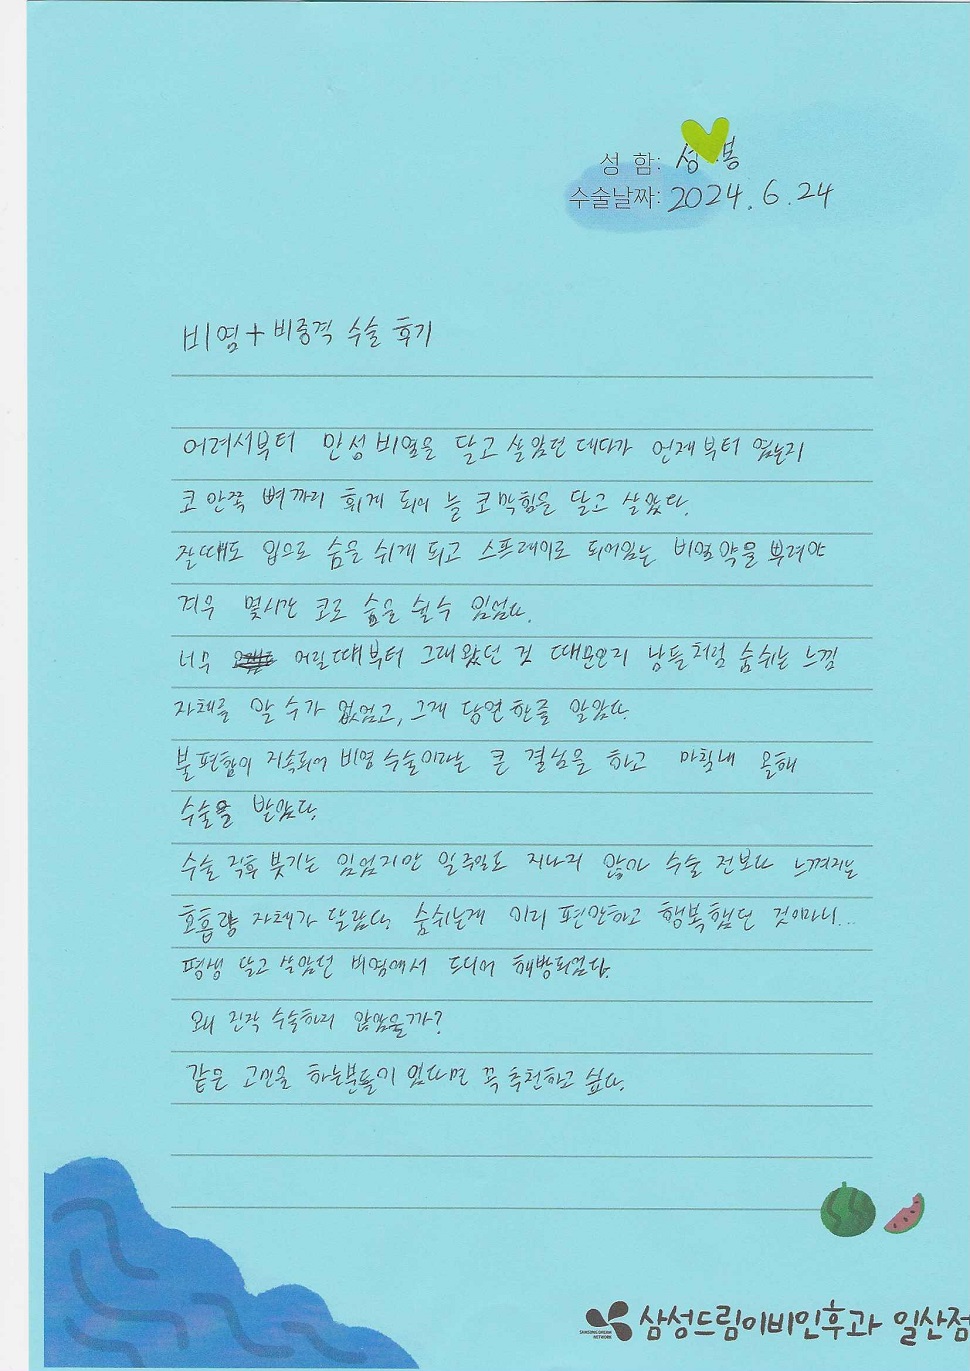 성 함: 성 봉
수술날짜: 2024. 6. 24
비염+비중격 수술 후기
어려서부터 만성비염을 달고 살았던 데다가 언제부터 였는지
코 안쪽 뼈까지 휘게 되어 늘 코막힘을 달고 살았다.
잘때도 입으로 숨을 쉬게 되고 스프레이로 되어있는 비염약을 뿌려야
겨우 몇시간 코로 숨을 쉴수 있었다.
너무 어릴때부터 그래왔던 것 때문인지 남들처럼 숨쉬는 느낌
자체를 알 수가 없었고, 그게 당연한줄 알았다.
불편함이 지속되어 비염수술이라는 큰 결심을 하고 마침내 올해
수술을 받았다.
수술 직후 붓기는 있었지만 일주일도 지나지 않아 수술 전보다 느껴지는
호흡량 자체가 달랐다. 숨쉬는게 이리 편안하고 행복했던 것이라니...
평생 달고 살았던 비염에서 드디어 해방되었다.
왜 진작 수술하지 않았을까?
같은 고민을 하는분들이 있다면 꼭 추천하고 싶다.
SAMSUNG DREAM
NETWORK
삼성드림이비인후과 일산점